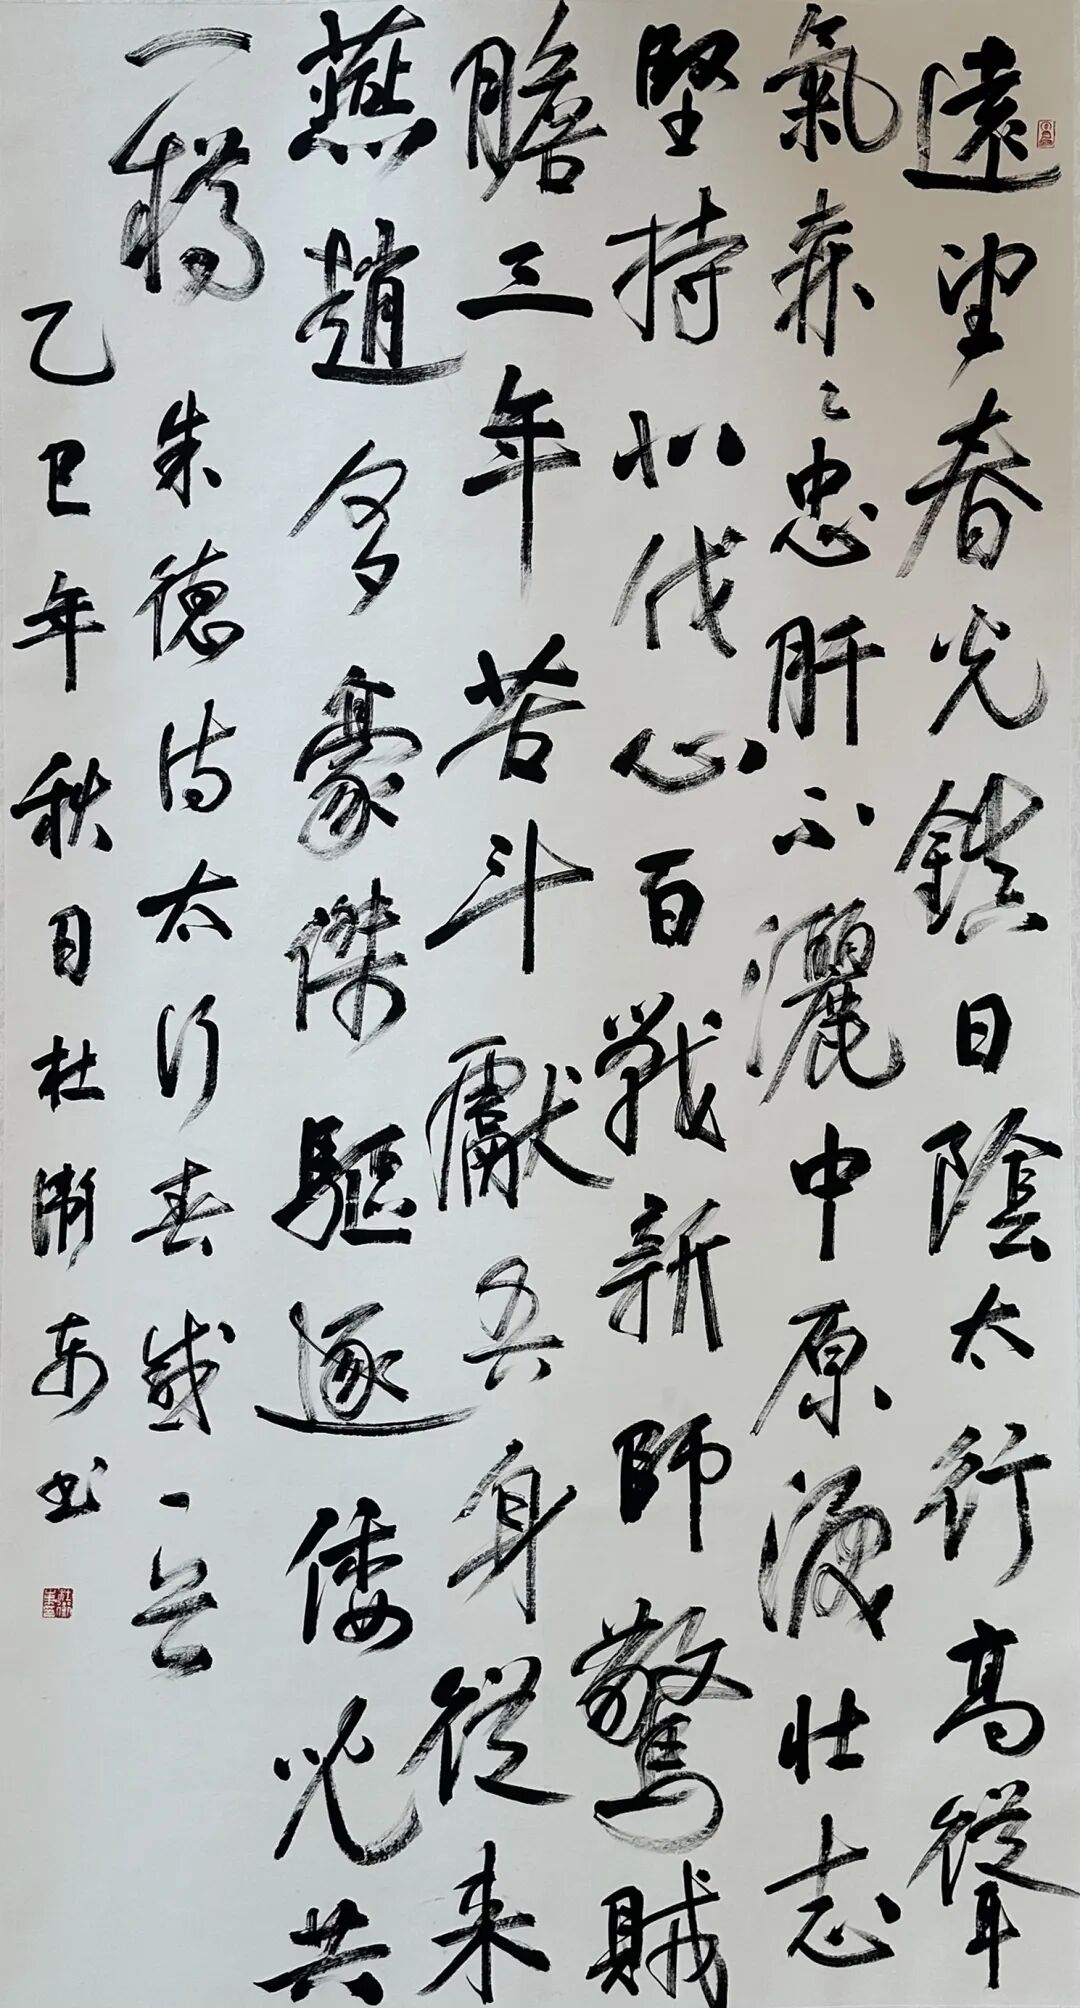 遠望春光鎮日陰太行高聳
氣森々忠肝不灑中原淚壯志
堅持北伐心百戰新師驚賊
膽三年苦斗獻吾身從来
燕趙多豪傑驅逐倭兒共
一樽 朱德诗太行春感一首
乙巳年秋月杜衛东书